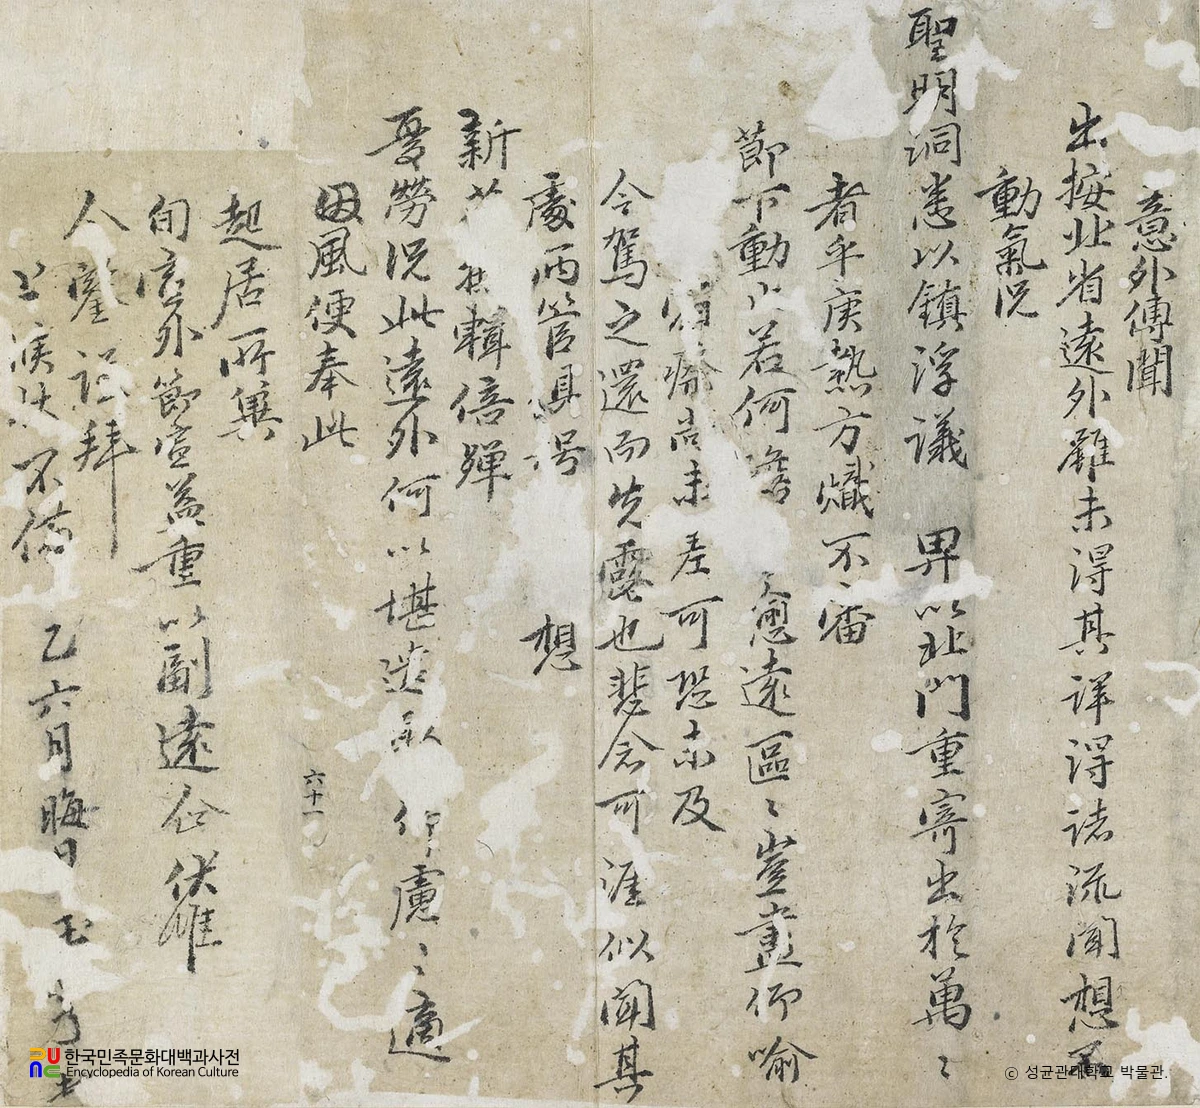 意外傳聞
出按北省遠外雖未得其詳得諸流聞想
動氣況
聖明洞悉以鎮浮議 畀以北門重寄出於萬〻
者乎庚熱方熾不審
節下動止若何 〻慰遠區〻豈盡仰喻
尚未差可恐未及
今駕之還而先露也悲念可涯似聞其
處兩 想
新 輯倍殫
憂勞況此遠外何以堪 仰慮〻適
因風便奉此
起居所冀
旬宣外節宣益重以副遠 伏惟
人 拜
上 不備
乙六月晦日
六十一
한국민족문화대백과사전
Encyclopedia of Korean Culture
ⓒ 성균관대학교 박물관.